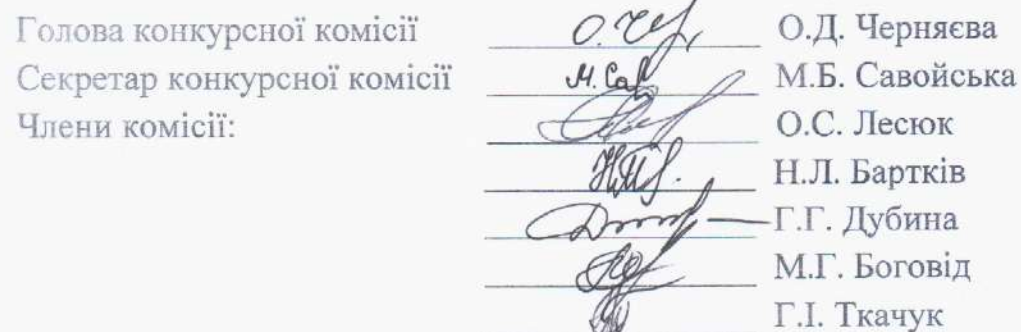 Голова конкурсної комісії О. Че О.Д. Черняєва
Секретар конкурсної комісії М. Сав М.Б. Савойська
Члени комісії: О.С. Лесюк
Н.Л. Бартків
Г.Г. Дубина
М.Г. Боговід
Г.І. Ткачук